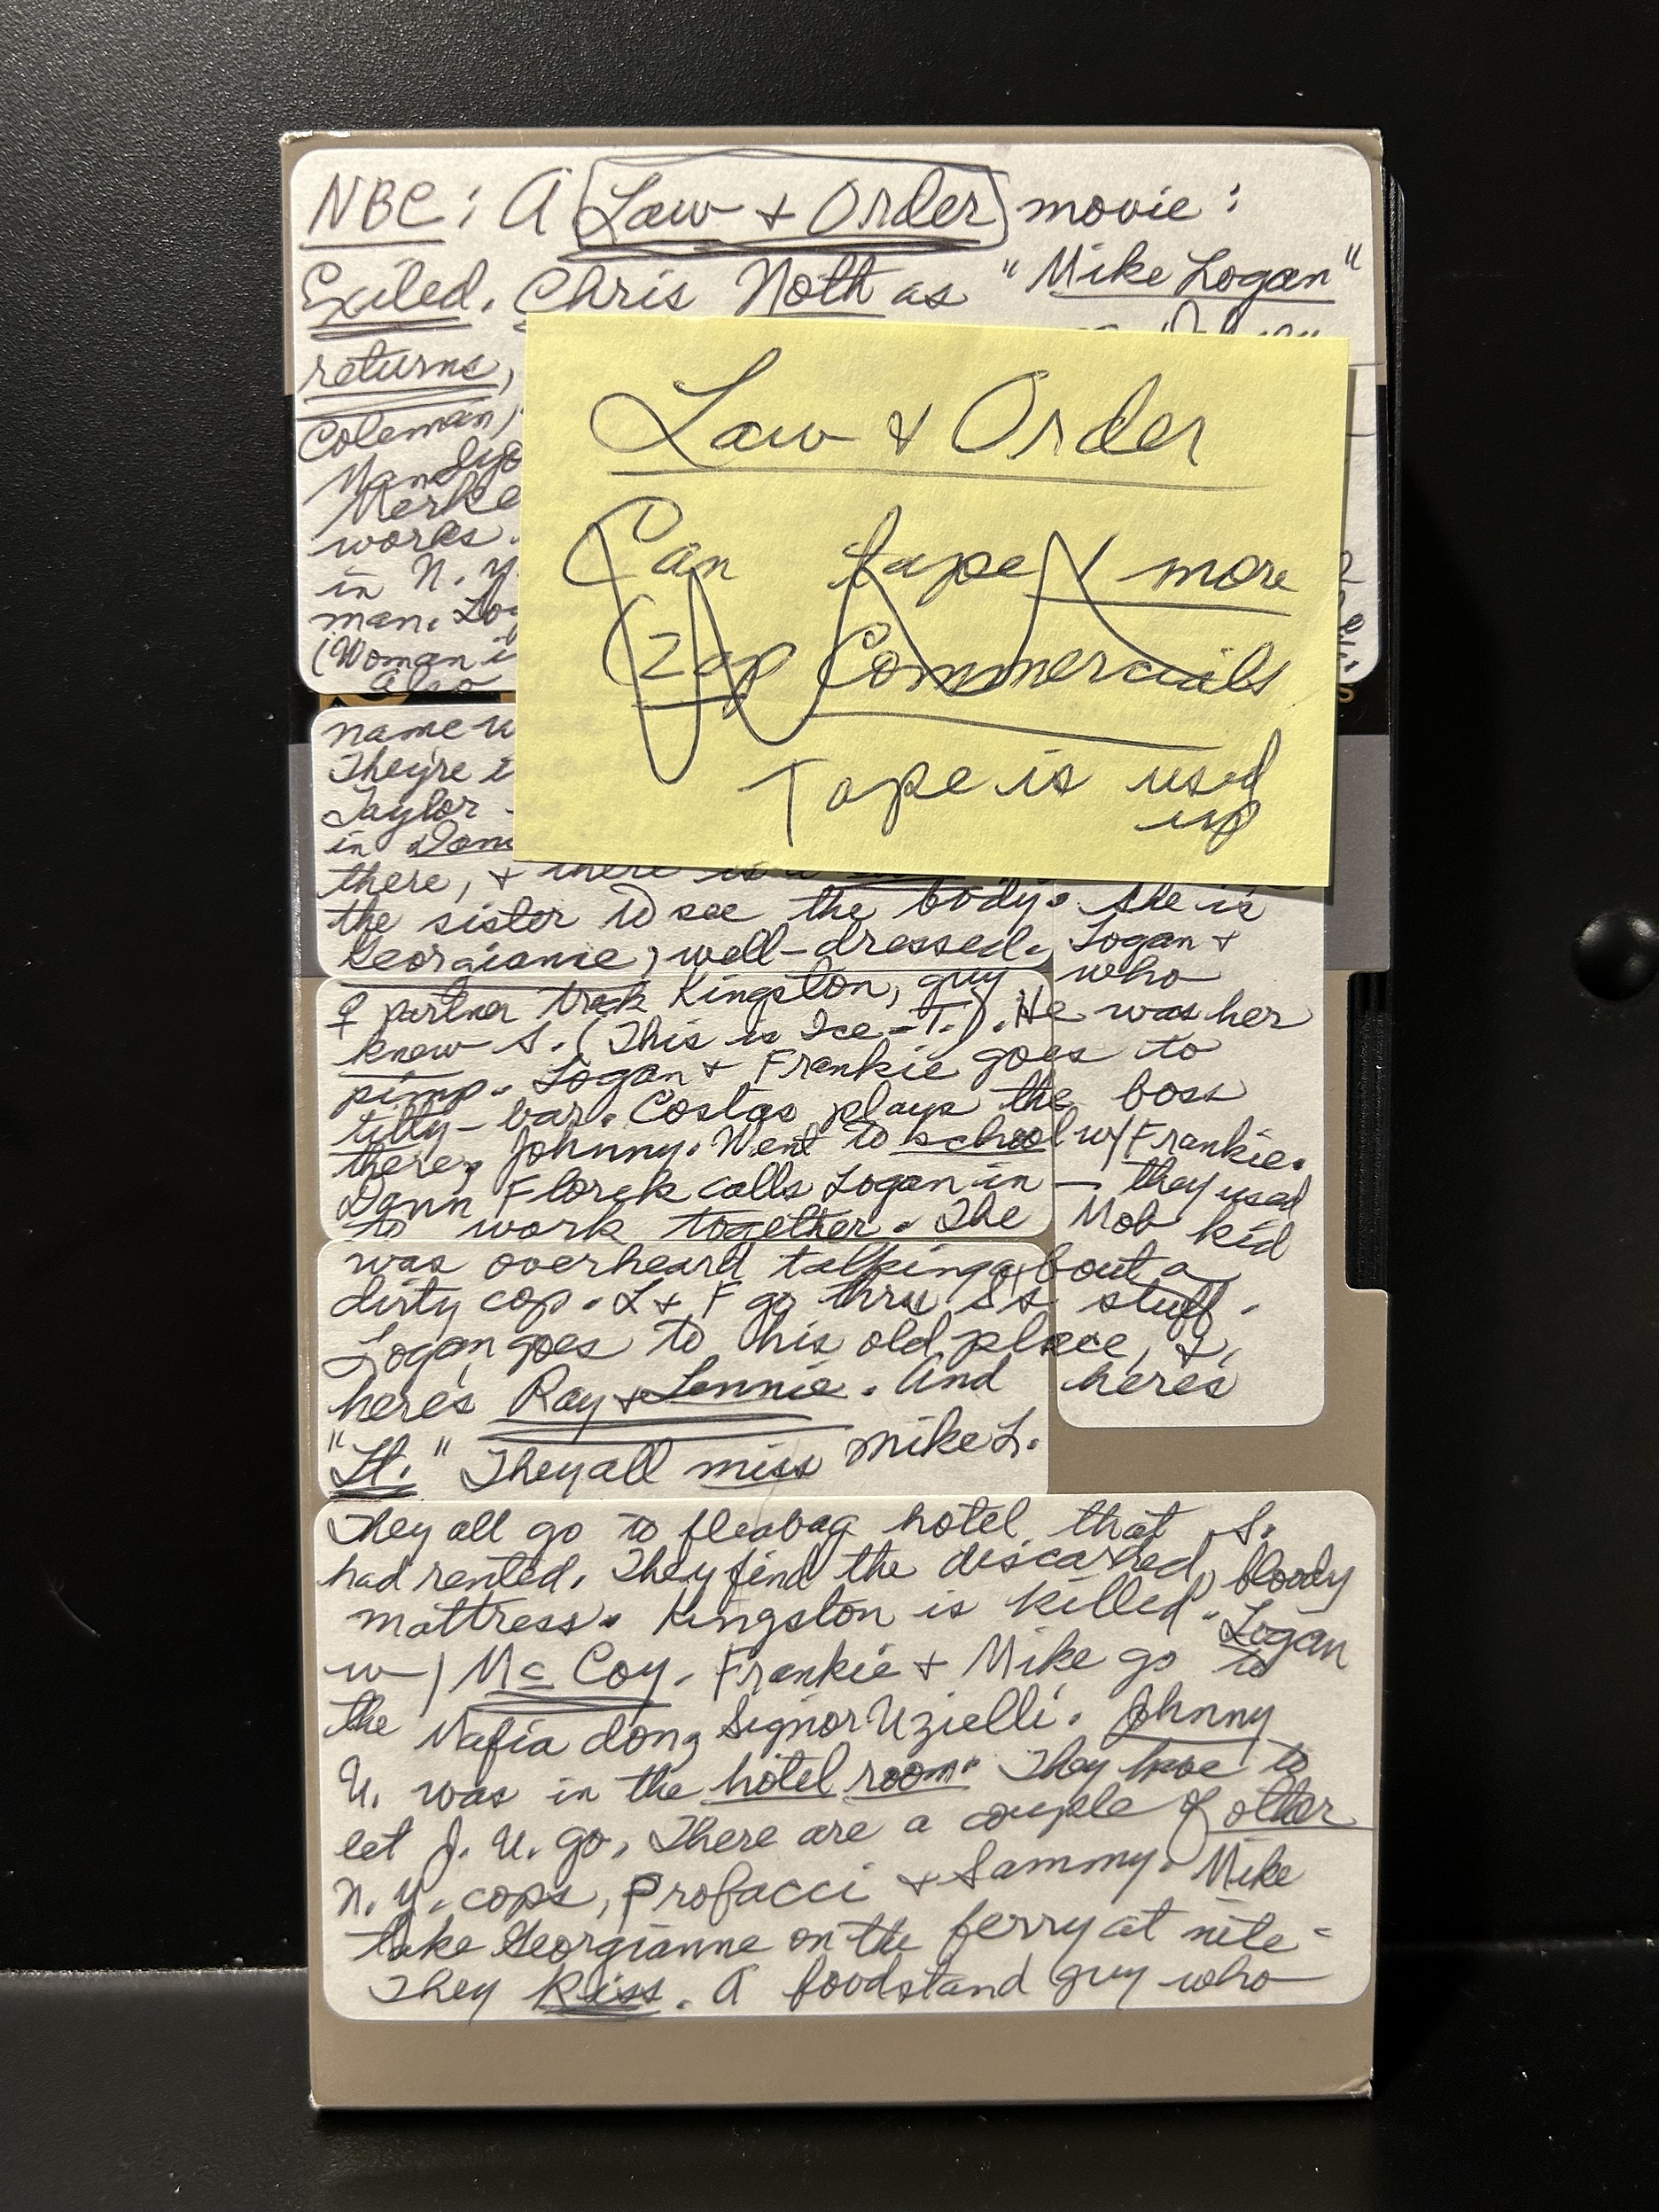 NBC: A Law & Order movie:
Exiled. Chris Noth as "Mike Logan"
returns,
Coleman,
works.
in N.Y.
man.
(Woman
also
Law & Order
Can tape more
(Zap Commercials
Tape is used
up
name
They're
Taylor
in
there, +
the sister to see the body. She is
Georgianne, well-dressed. Logan +
♀ partner track Kingston, guy who
knew S. (This is Ice-T.). He was her
pimp. Logan + Frankie goes to
titty-bar. Costas plays the boss
there, Johnny. Went to school w/ Frankie.
Dann Florek calls Logan in — they used
to work together. The Mob kid
was overheard talking about a
dirty cop. L + F go thru S's stuff.
Logan goes to his old place, &,
here's Ray + Lennie. And here's
"Lt." They all miss Mike L.
They all go to fleabag hotel that S.
had rented. They find the discarded, bloody
mattress. Kingston is killed. Logan
w/ McCoy. Frankie + Mike go to
the Mafia don, Signor Uzielli. Johnny
U. was in the hotel room. They have to
let J. U. go. There are a couple of other
N.Y. cops, Profacci + Sammy. Mike
take Georgianne on the ferry at nite-
They kiss. A foodstand guy who